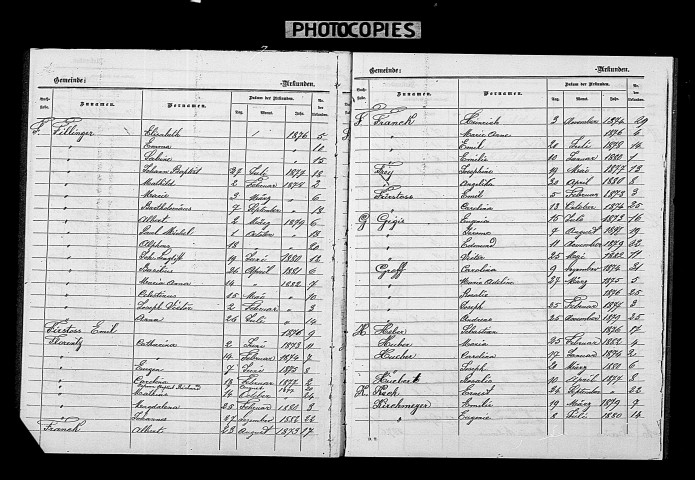 PHOTOCOPIES
Gemeinde: -Urkunden.
Zunamen. Vornamen. Datum der Urkunden.
Tag. Monat. Jahr.
F. Fillinger Elisabeth / 1876 5
" Emma " " 10
" Sabine " 15
" Johann Baptist 27 Juli 1877 18
" Mathild 2 Februar 1878 2
" Marie 3 März " 6
" Bartholomäus 7 September " 18
" Albert 2 März 1879 6
" Paul Michel 1 October " 18
" Alphons 18 " " 20
" 19 Juni 1880 12
" Basilius 26 April 1881 6
" Maria Anna 14 " 1882 7
" Celestinus 15 Mai " 10
" Joseph Victor 2 Februar " 3
" Anna 26 Juli " 14
Firstoss Emil 1876 9
Florentz Catharina 2 Juni 1873 11
" 14 Februar 1874 7
" Eugen 7 Juni 1875 8
" Carolina 19 Februar 1877 2
" Mathias 14 October 24
" Magdalena 25 Februar 1881 3
" Johannes 27 Dezember 1886 26
Franck Albert 23 August 1873 17
Gemeinde: -Urkunden.
Zunamen. Vornamen. Datum der Urkunden.
Tag. Monat. Jahr.
F Franck Heinrich 3 November 1874 29
" Marie Anne 1876 6
" Emil 20 Juli 1878 14
" Emilie 10 Januar 1880 1
Frey Josephine 19 Mai 1877 13
" Angelika 20 April 1880 8
Fürstoss Emil 5 Februar 1873 3
" Carolina 13 October 1874 25
G Gigis Eugenia 15 Juli 1873 16
" Jérome 9 August 1877 19
" Edouard 11 November 1879 22
" Victor 25 Mai 1882 11
Groff Carolina 9 Dezember 1874 31
" Maria Adeline 27 März 1875 5
" Rosalie 1876 25
" Joseph 25 Februar 1878 3
" Andreas 26 November 1879 25
H Haber Sebastian 1876 17
Huber Maria 25 Februar 1882 4
Hucher Carolina 17 Januar 1874 2
" Joseph 20 März 1880 6
Huckert Rosalie 10 April 1877 8
K. Keck Ernest 24 September 1876 22
Kirchmeyer Emilie 19 März 1879 7
" Eugenie 8 Juli 1880 14